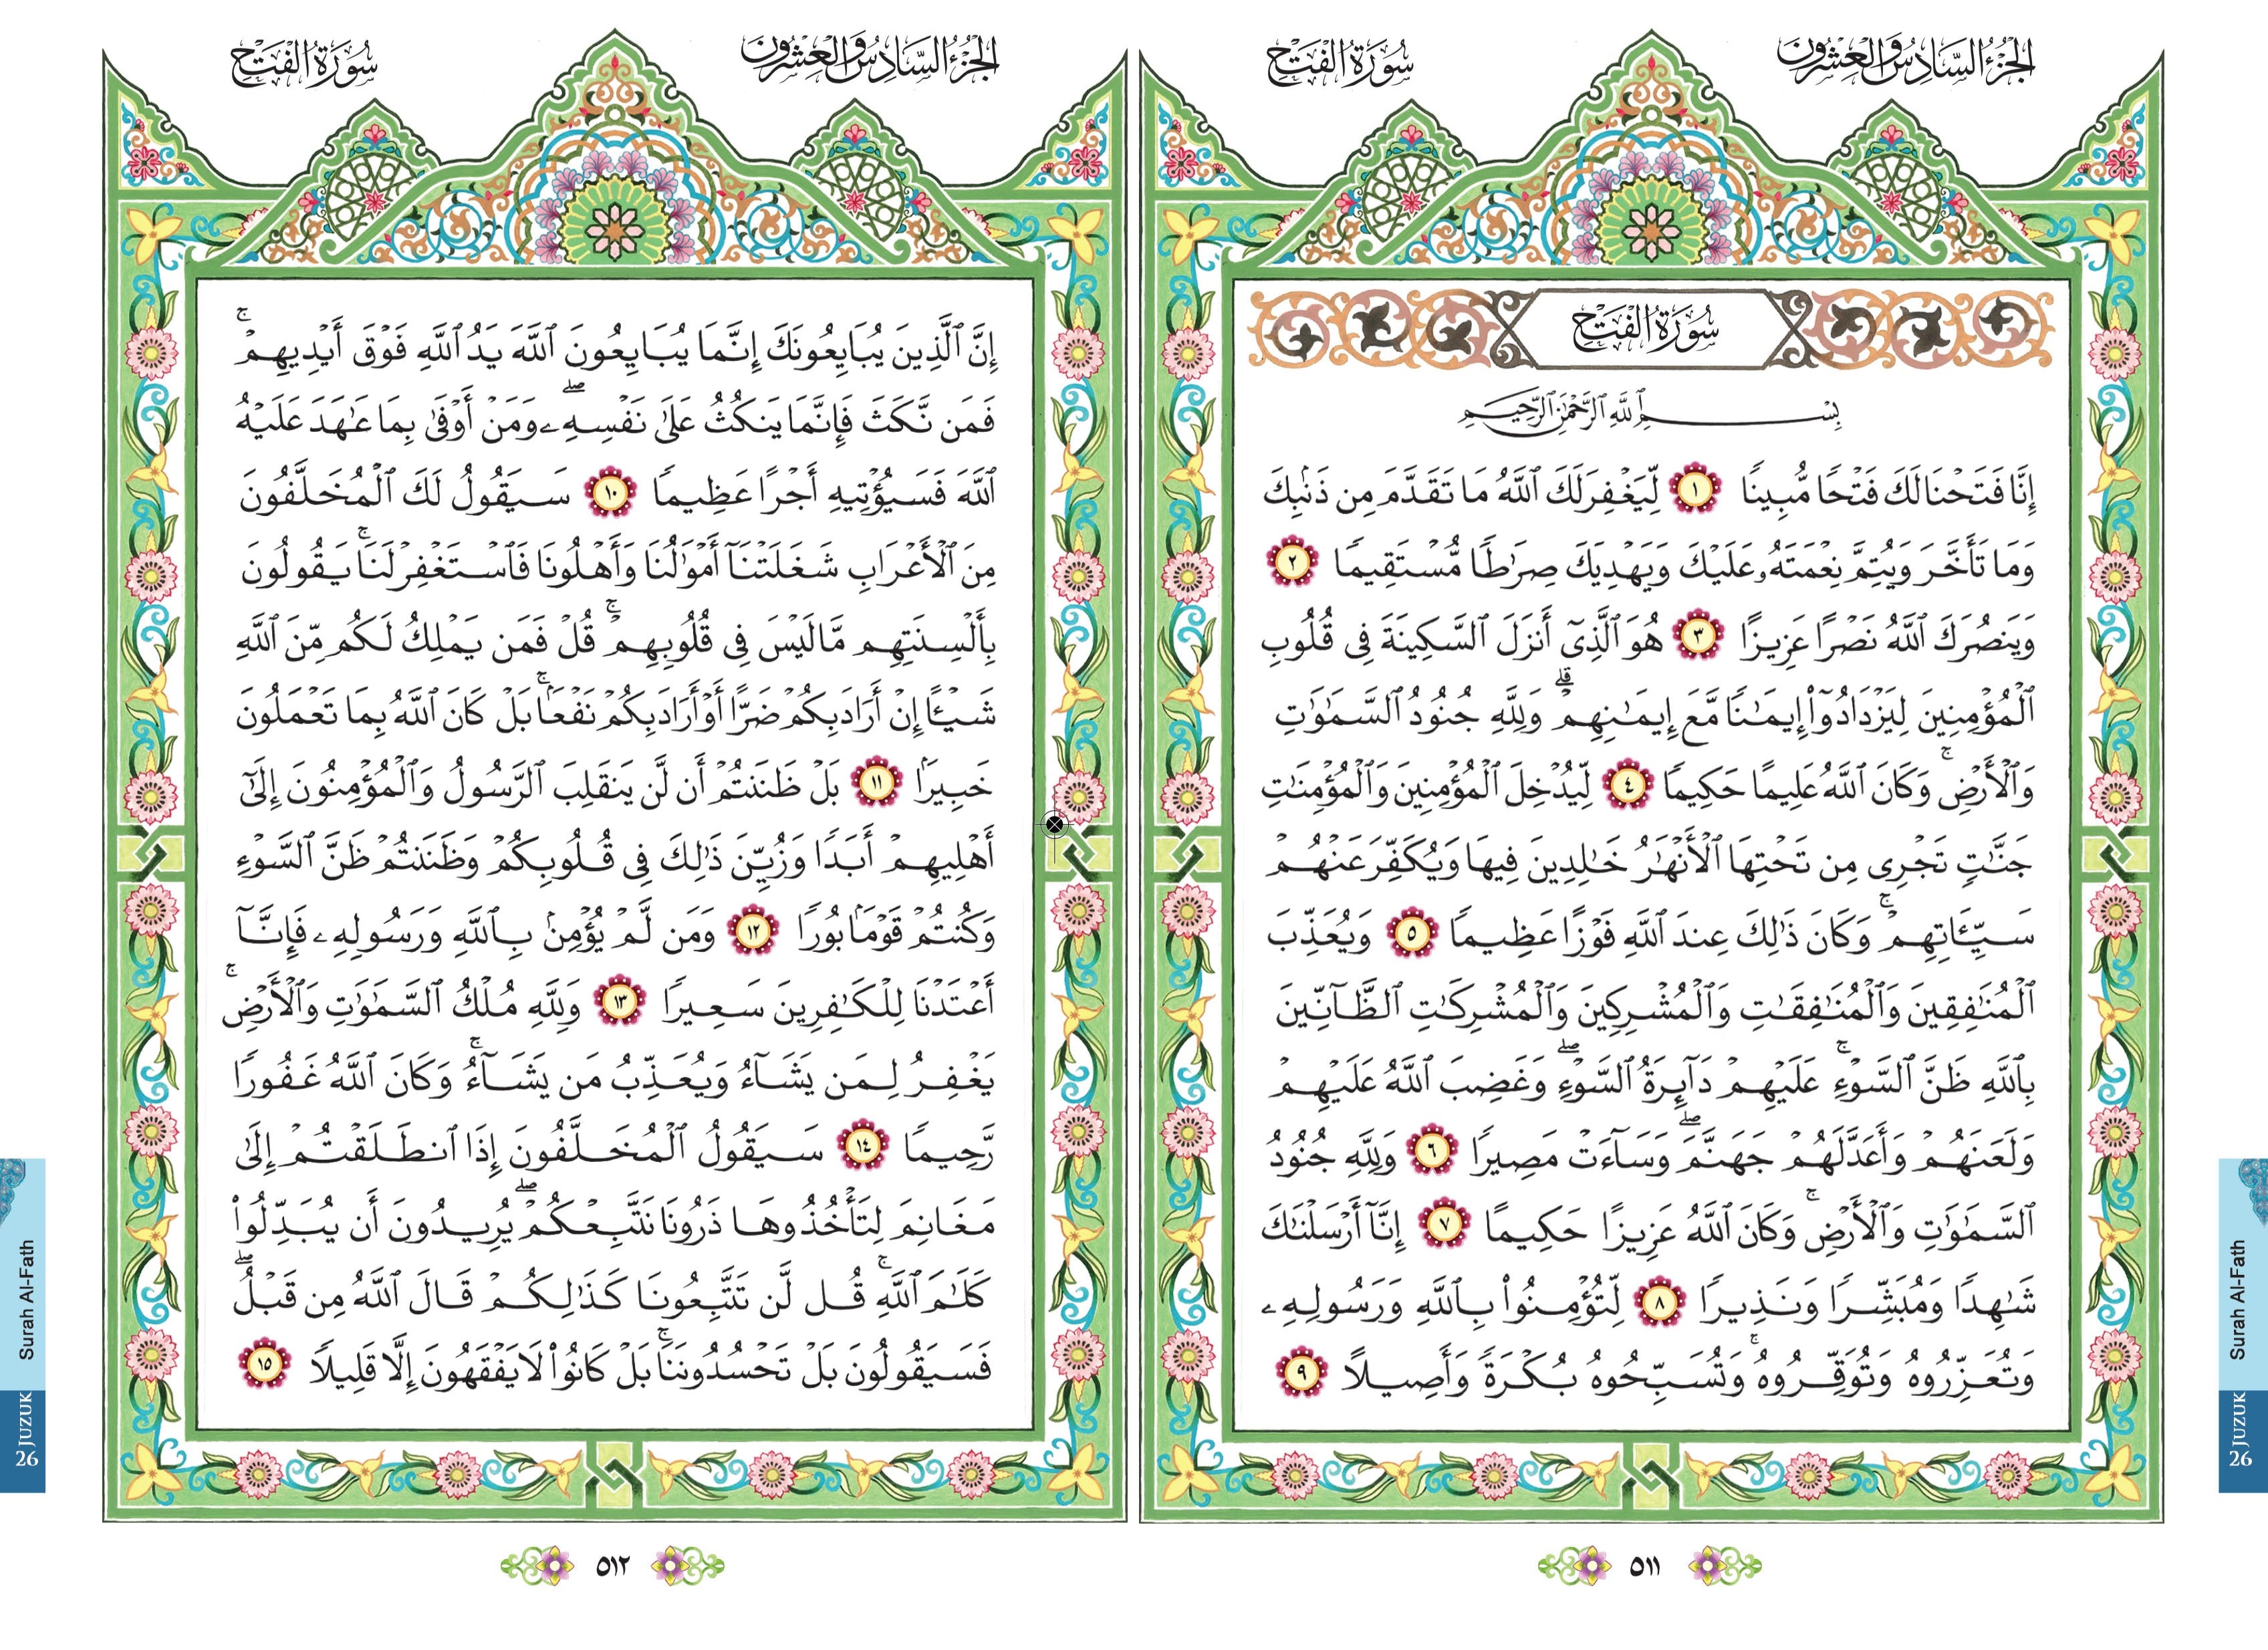 الجزء السادس والعشرون
سورة الفتح
سُورَةُ الفَتْحِ
بِسْمِ ٱللَّهِ ٱلرَّحْمَٰنِ ٱلرَّحِيمِ
إِنَّا فَتَحْنَا لَكَ فَتْحًا مُّبِينًا ١ لِّيَغْفِرَ لَكَ ٱللَّهُ مَا تَقَدَّمَ مِن ذَنۢبِكَ
وَمَا تَأَخَّرَ وَيُتِمَّ نِعْمَتَهُۥ عَلَيْكَ وَيَهْدِيَكَ صِرَٰطًا مُّسْتَقِيمًا ٢
وَيَنصُرَكَ ٱللَّهُ نَصْرًا عَزِيزًا ٣ هُوَ ٱلَّذِىٓ أَنزَلَ ٱلسَّكِينَةَ فِى قُلُوبِ
ٱلْمُؤْمِنِينَ لِيَزْدَادُوٓا۟ إِيمَٰنًا مَّعَ إِيمَٰنِهِمْ ۗ وَلِلَّهِ جُنُودُ ٱلسَّمَٰوَٰتِ
وَٱلْأَرْضِ ۚ وَكَانَ ٱللَّهُ عَلِيمًا حَكِيمًا ٤ لِّيُدْخِلَ ٱلْمُؤْمِنِينَ وَٱلْمُؤْمِنَٰتِ
جَنَّٰتٍ تَجْرِى مِن تَحْتِهَا ٱلْأَنْهَٰرُ خَٰلِدِينَ فِيهَا وَيُكَفِّرَ عَنْهُمْ
سَيِّـَٔاتِهِمْ ۚ وَكَانَ ذَٰلِكَ عِندَ ٱللَّهِ فَوْزًا عَظِيمًا ٥ وَيُعَذِّبَ
ٱلْمُنَٰفِقِينَ وَٱلْمُنَٰفِقَٰتِ وَٱلْمُشْرِكِينَ وَٱلْمُشْرِكَٰتِ ٱلظَّآنِّينَ
بِٱللَّهِ ظَنَّ ٱلسَّوْءِ ۚ عَلَيْهِمْ دَآئِرَةُ ٱلسَّوْءِ ۖ وَغَضِبَ ٱللَّهُ عَلَيْهِمْ
وَلَعَنَهُمْ وَأَعَدَّ لَهُمْ جَهَنَّمَ ۖ وَسَآءَتْ مَصِيرًا ٦ وَلِلَّهِ جُنُودُ
ٱلسَّمَٰوَٰتِ وَٱلْأَرْضِ ۚ وَكَانَ ٱللَّهُ عَزِيزًا حَكِيمًا ٧ إِنَّآ أَرْسَلْنَٰكَ
شَٰهِدًا وَمُبَشِّرًا وَنَذِيرًا ٨ لِّتُؤْمِنُوا۟ بِٱللَّهِ وَرَسُولِهِۦ
وَتُعَزِّرُوهُ وَتُوَقِّرُوهُ ۚ وَتُسَبِّحُوهُ بُكْرَةً وَأَصِيلًا ٩
٥١١
Surah Al-Fath
JUZUK
26
الجزء السادس والعشرون
سورة الفتح
إِنَّ ٱلَّذِينَ يُبَايِعُونَكَ إِنَّمَا يُبَايِعُونَ ٱللَّهَ يَدُ ٱللَّهِ فَوْقَ أَيْدِيهِمْ ۚ
فَمَن نَّكَثَ فَإِنَّمَا يَنكُثُ عَلَىٰ نَفْسِهِۦ ۖ وَمَنْ أَوْفَىٰ بِمَا عَٰهَدَ عَلَيْهُ
ٱللَّهَ فَسَيُؤْتِيهِ أَجْرًا عَظِيمًا ١٠ سَيَقُولُ لَكَ ٱلْمُخَلَّفُونَ
مِنَ ٱلْأَعْرَابِ شَغَلَتْنَآ أَمْوَٰلُنَا وَأَهْلُونَا فَٱسْتَغْفِرْ لَنَا ۚ يَقُولُونَ
بِأَلْسِنَتِهِم مَّا لَيْسَ فِى قُلُوبِهِمْ ۚ قُلْ فَمَن يَمْلِكُ لَكُم مِّنَ ٱللَّهِ
شَيْـًٔا إِنْ أَرَادَ بِكُمْ ضَرًّا أَوْ أَرَادَ بِكُمْ نَفْعًۢا ۚ بَلْ كَانَ ٱللَّهُ بِمَا تَعْمَلُونَ
خَبِيرًۢا ١١ بَلْ ظَنَنتُمْ أَن لَّن يَنقَلِبَ ٱلرَّسُولُ وَٱلْمُؤْمِنُونَ إِلَىٰٓ
أَهْلِيهِمْ أَبَدًا وَزُيِّنَ ذَٰلِكَ فِى قُلُوبِكُمْ وَظَنَنتُمْ ظَنَّ ٱلسَّوْءِ
وَكُنتُمْ قَوْمًۢا بُورًا ١٢ وَمَن لَّمْ يُؤْمِنۢ بِٱللَّهِ وَرَسُولِهِۦ فَإِنَّآ
أَعْتَدْنَا لِلْكَٰفِرِينَ سَعِيرًا ١٣ وَلِلَّهِ مُلْكُ ٱلسَّمَٰوَٰتِ وَٱلْأَرْضِ ۚ
يَغْفِرُ لِمَن يَشَآءُ وَيُعَذِّبُ مَن يَشَآءُ ۚ وَكَانَ ٱللَّهُ غَفُورًا
رَّحِيمًا ١٤ سَيَقُولُ ٱلْمُخَلَّفُونَ إِذَا ٱنطَلَقْتُمْ إِلَىٰ
مَغَانِمَ لِتَأْخُذُوهَا ذَرُونَا نَتَّبِعْكُمْ ۖ يُرِيدُونَ أَن يُبَدِّلُوا۟
كَلَٰمَ ٱللَّهِ ۚ قُل لَّن تَتَّبِعُونَا كَذَٰلِكُمْ قَالَ ٱللَّهُ مِن قَبْلُ ۖ
فَسَيَقُولُونَ بَلْ تَحْسُدُونَنَا ۚ بَلْ كَانُوا۟ لَا يَفْقَهُونَ إِلَّا قَلِيلًا ١٥
٥١٢
Surah Al-Fath
JUZUK
26